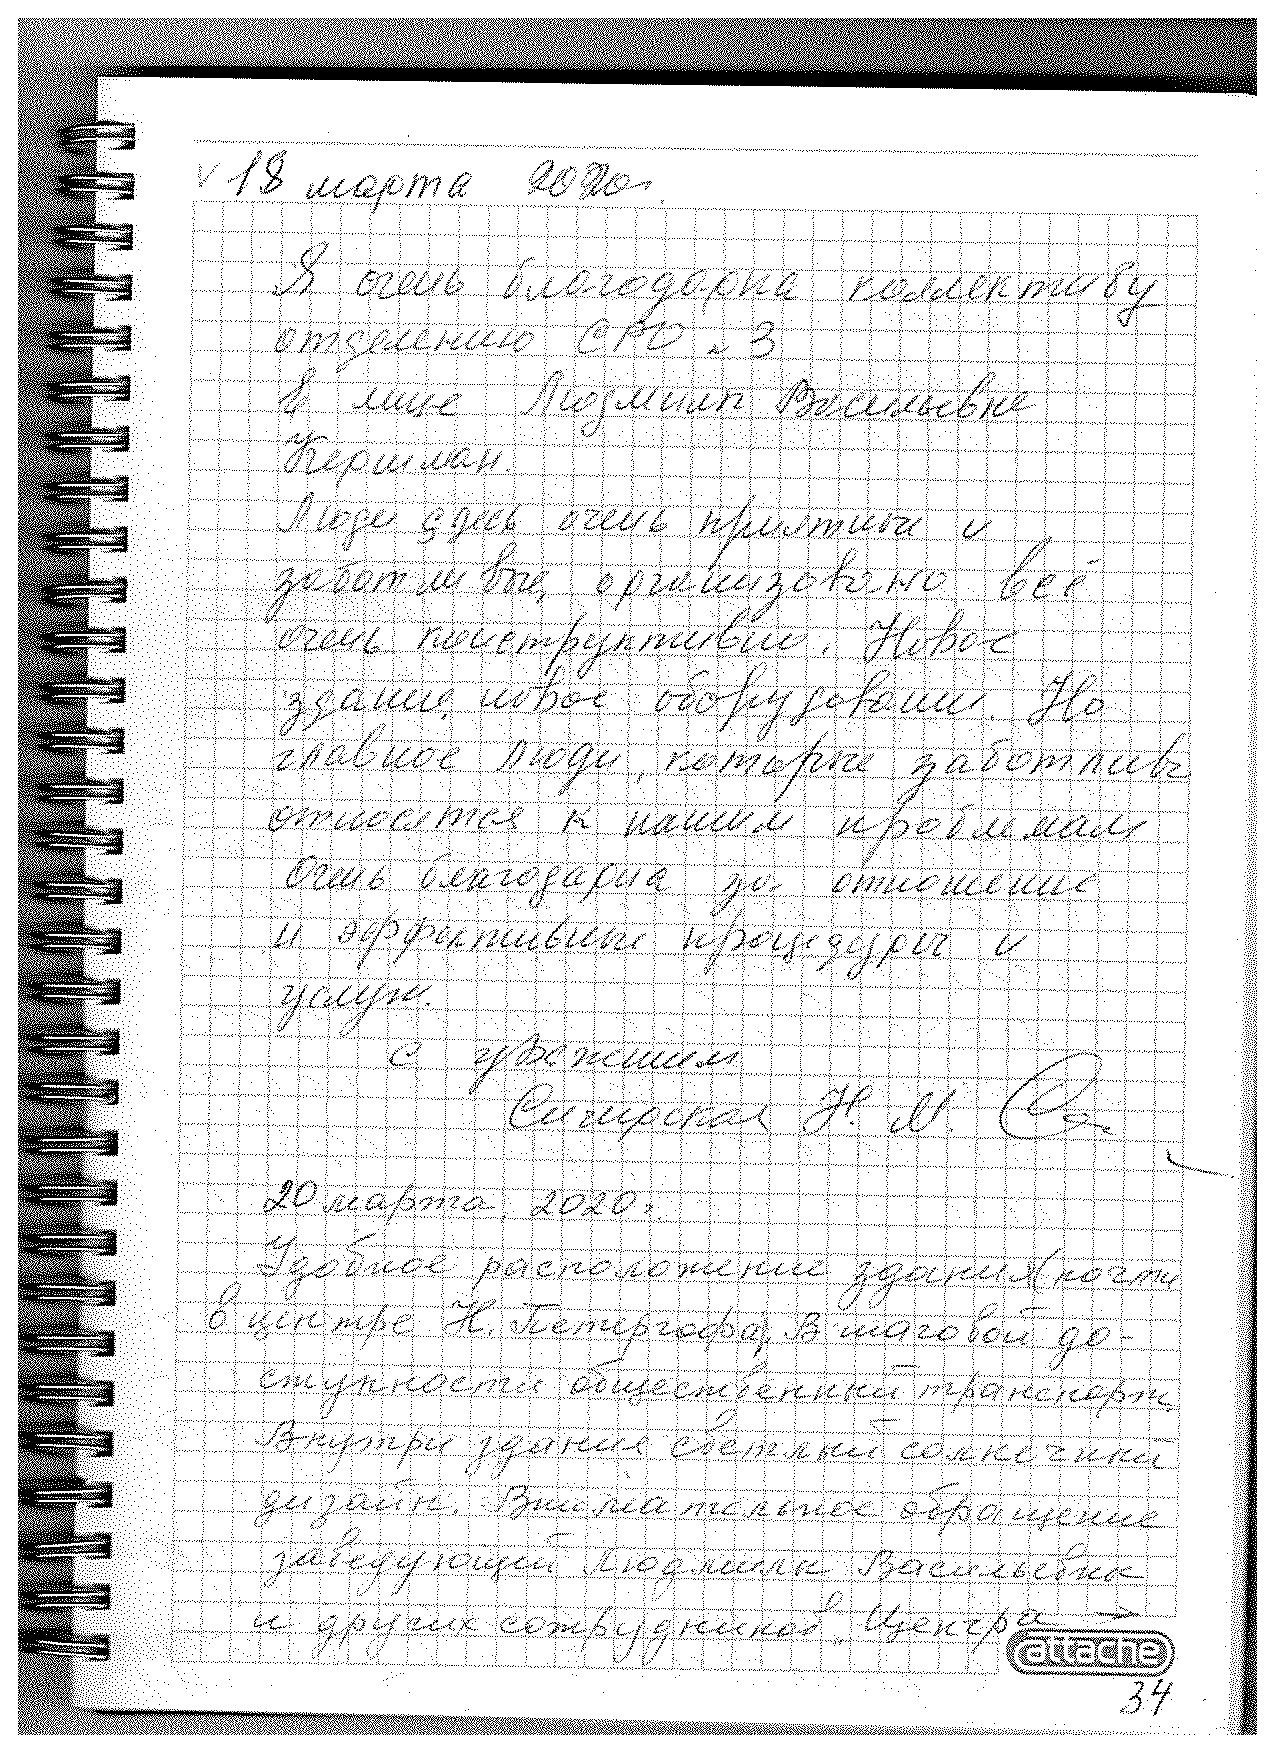 18 марта 2020г.
Я очень благодарна коллективу
отделению СРО № 3
в лице Людмилы Васильевне
Кершман.
Люди здесь очень приятные и
заботливые, организовано всё
очень конструктивно. Новое
здание, новое оборудование. Но
главное люди, которые заботливо
относятся к нашим проблемам
Очень благодарна за отношение
и эффективные процедуры и
услуги.
с уважением
Н. М.
20 марта 2020г.
Удобное расположение здания (почти
в центре Н. Петергофа). В шаговой до-
ступности общественный транспорт.
Внутри здания светлый солнечный
дизайн. Внимательное обращение
заведующей Людмилы Васильевны
и других сотрудников Центра →
attache
34